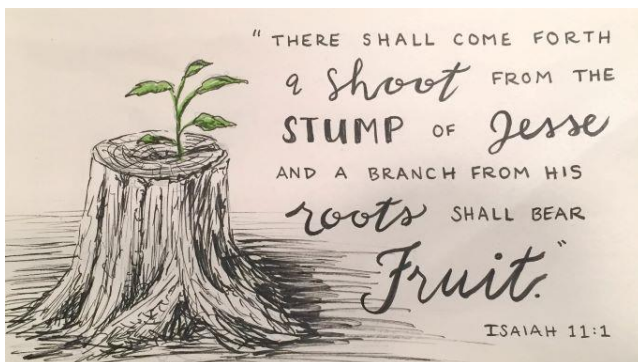 "THERE SHALL COME FORTH
a shoot FROM THE
STUMP OF Jesse
AND A BRANCH FROM HIS
roots SHALL BEAR
Fruit."
ISAIAH 11:1